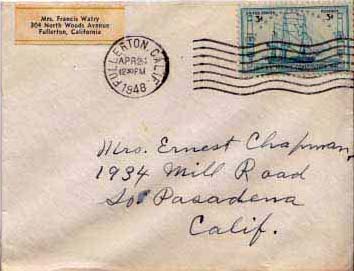 Mrs. Francis Watry
304 North Woods Avenue
Fullerton, California
FULLERTON, CALIF.
APR 28
12:30 PM
1948
3¢ 3¢
Mrs. Ernest Chapman,
1934 Mill Road
So. Pasadena
Calif.